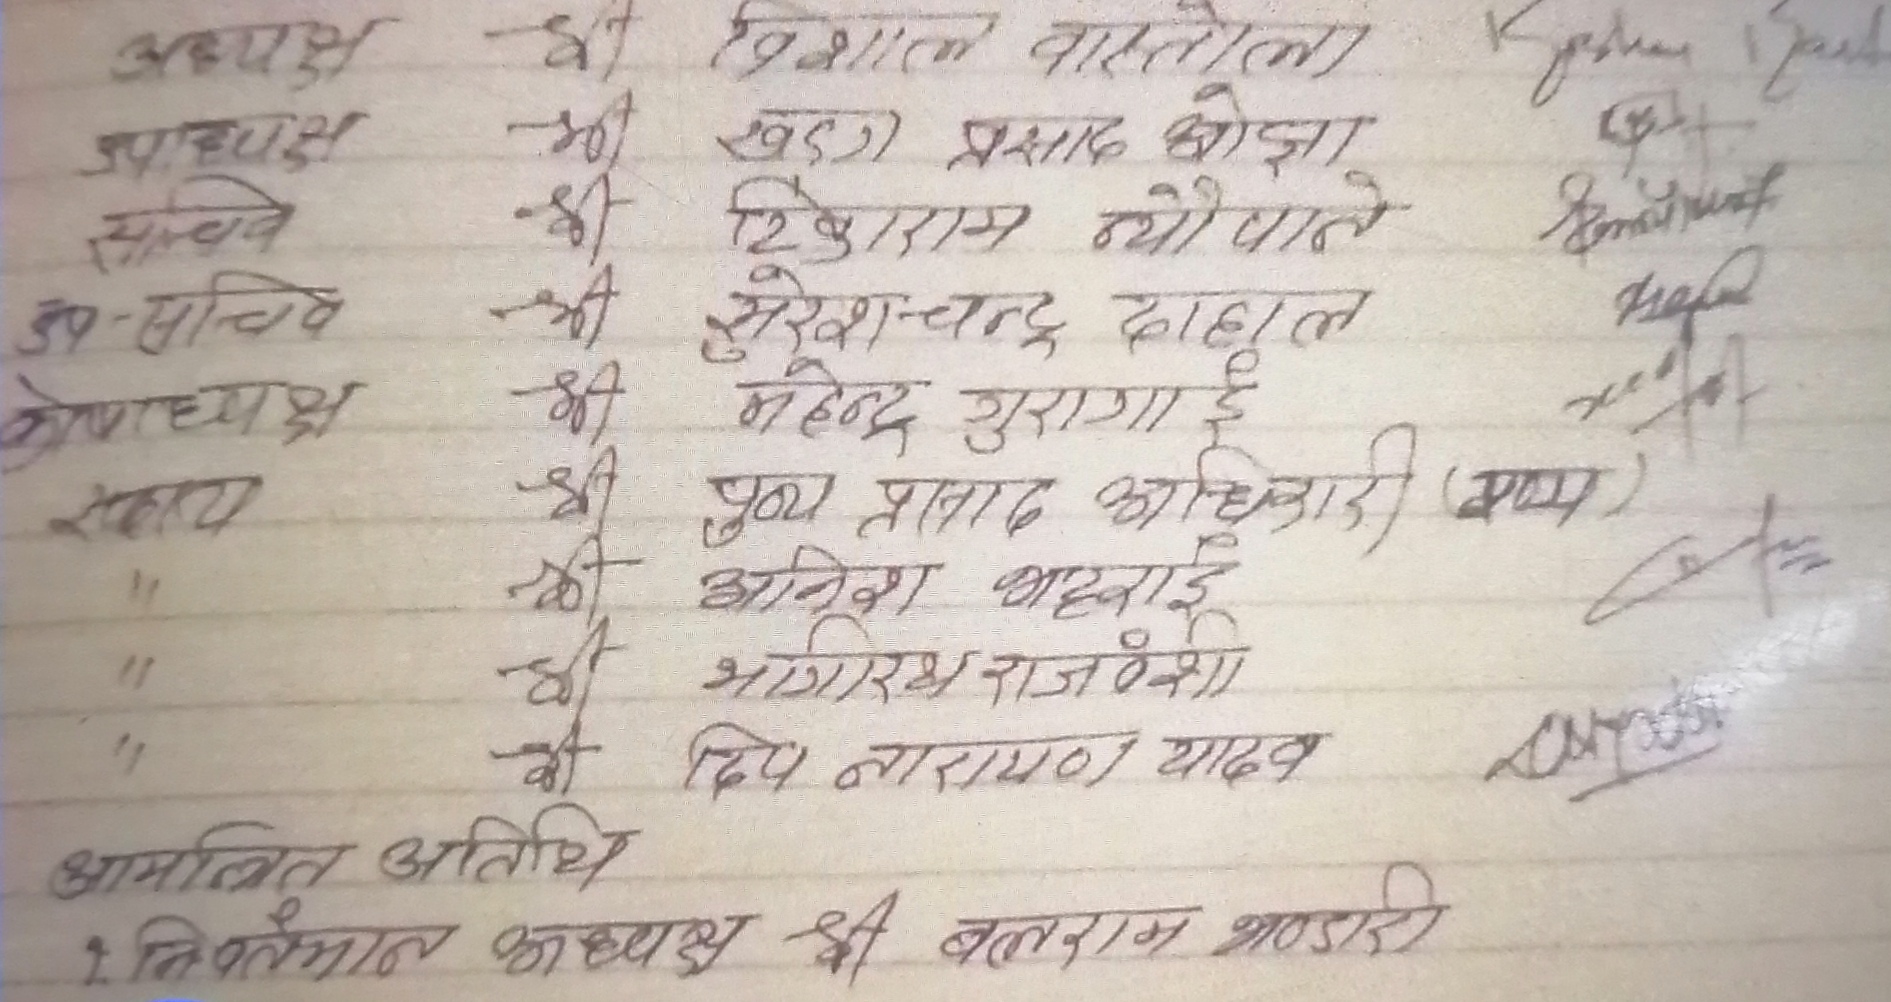 अध्यक्ष श्री विशाल वास्तोला
उपाध्यक्ष श्री खड्ग प्रसाद ओझा
सचिव श्री टिकाराम न्यौपाने
उप-सचिव श्री सुरेशचन्द्र दाहाल
कोषाध्यक्ष श्री महेन्द्र गुरागाई
सदस्य श्री पुण्य प्रसाद अधिकारी
" श्री अनिश भट्टराई
" श्री भागिरथ राजवंशी
" श्री दिप नारायण यादव
आमन्त्रित अतिथि
१. निवर्तमान अध्यक्ष श्री बलराम भण्डारी